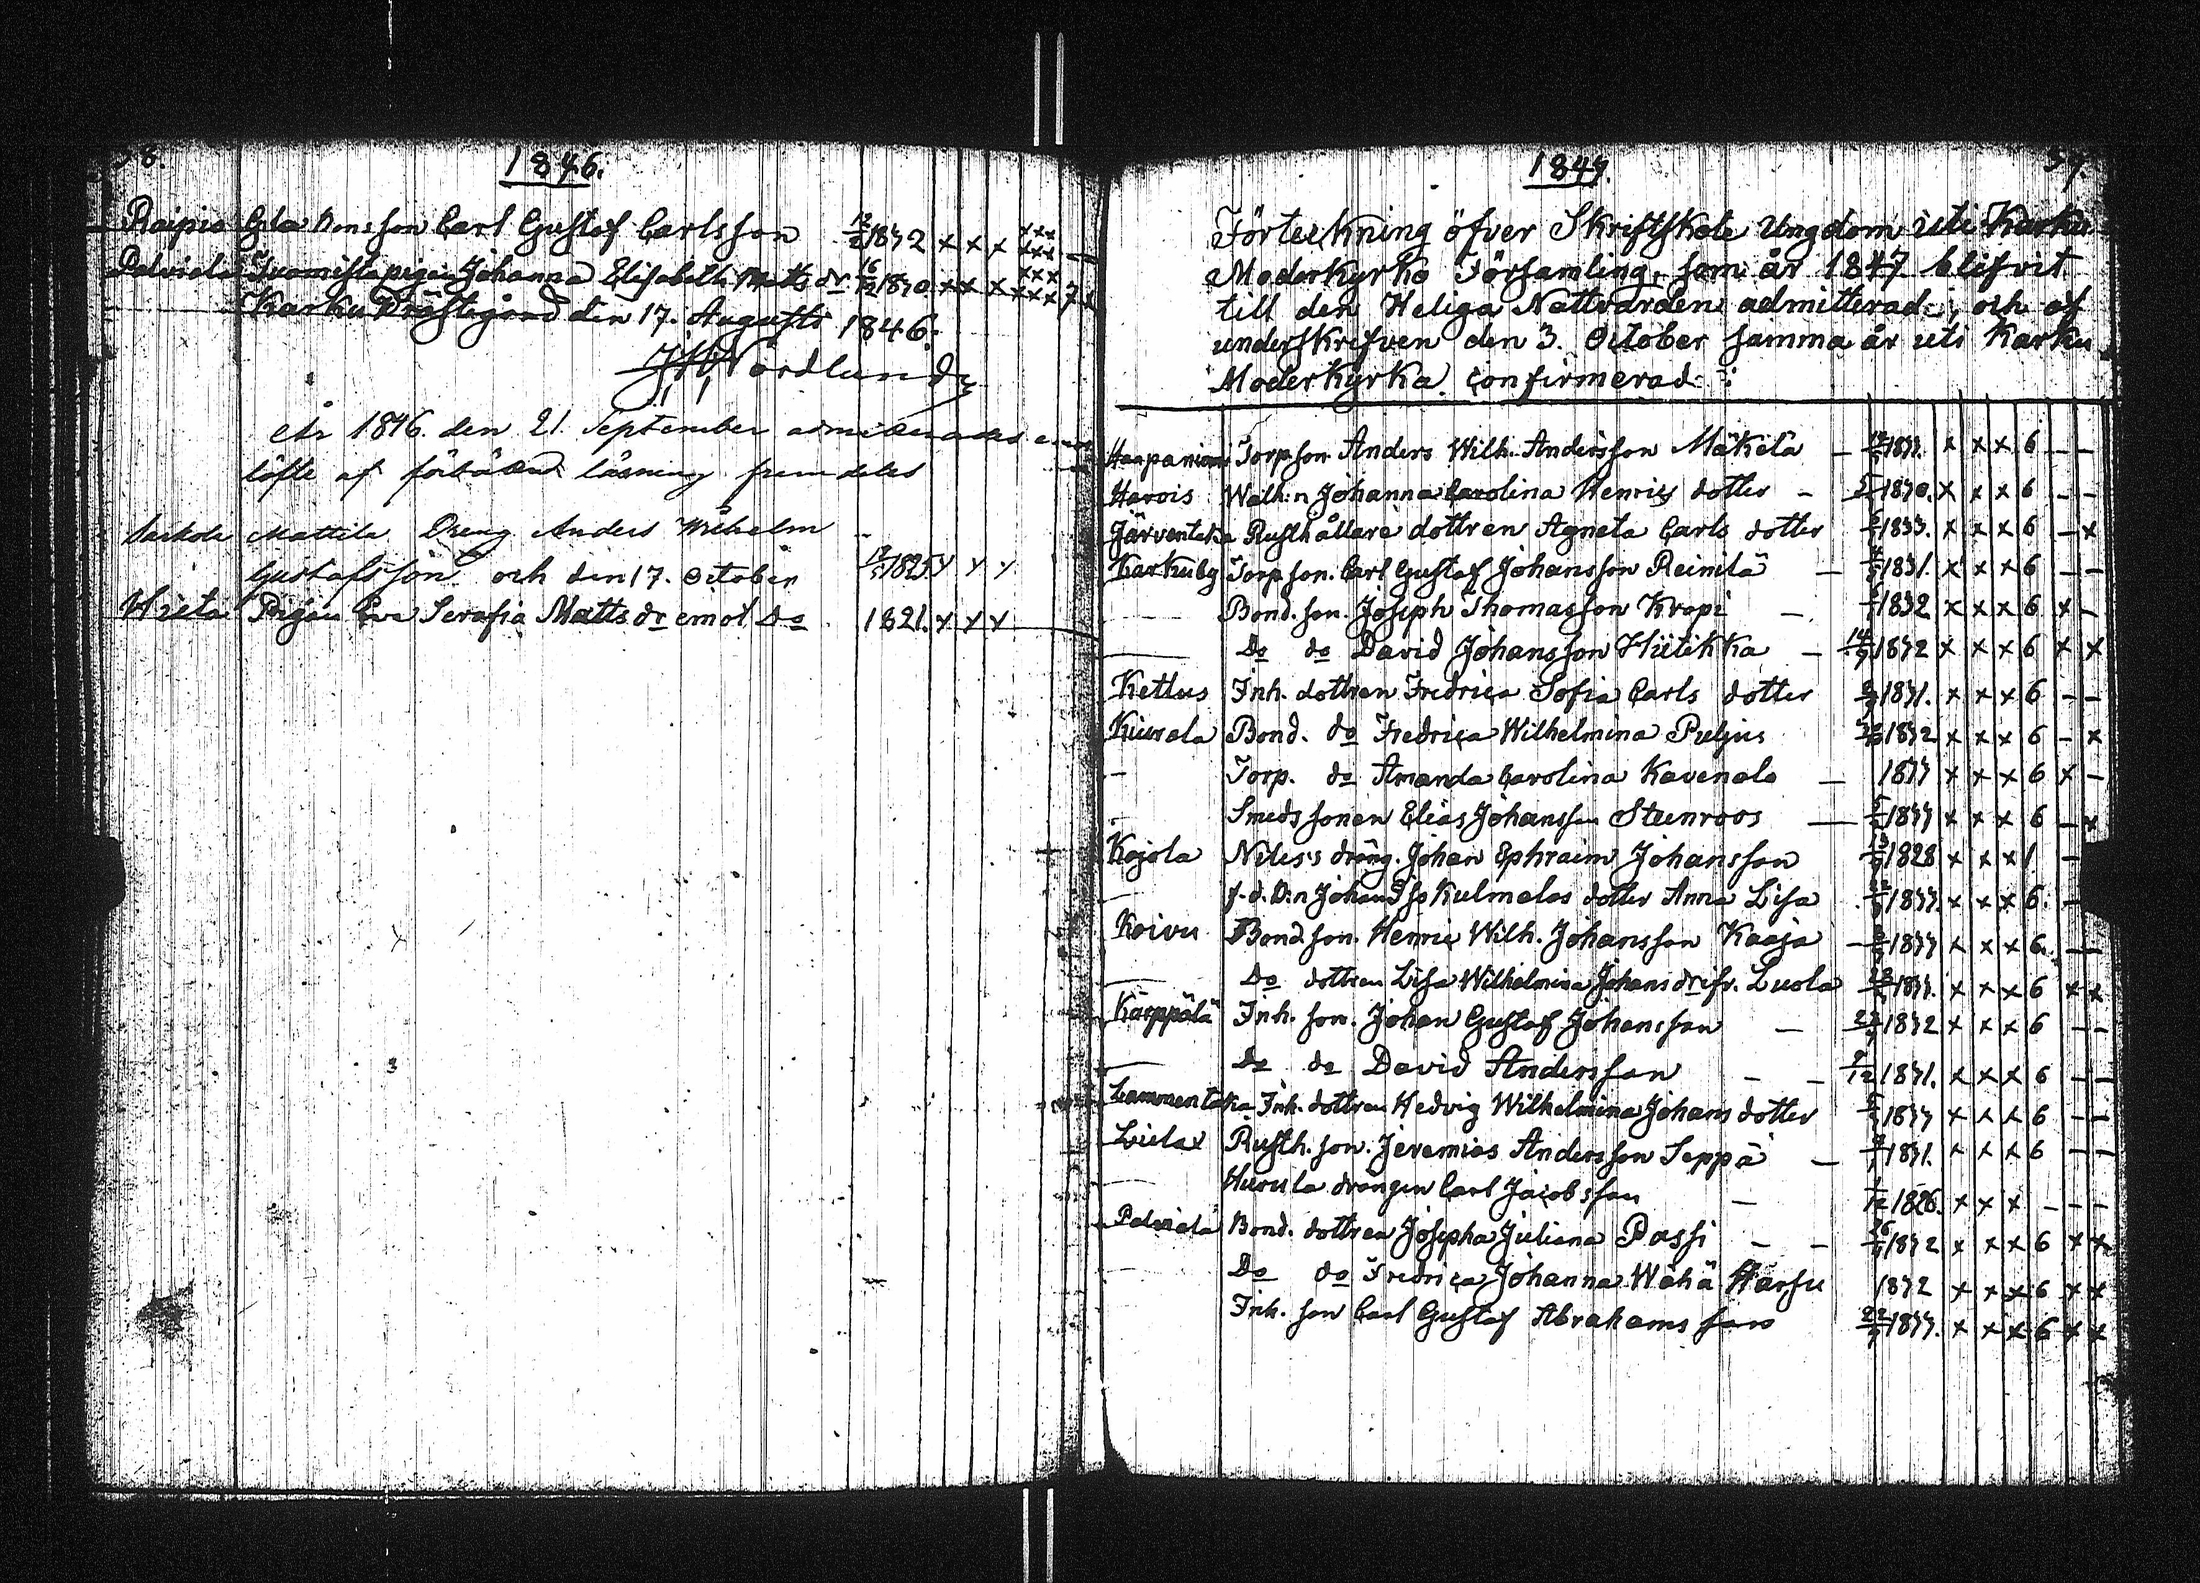 1846.
Raipio Carl Gustaf Carlsson 1832 x x x xxx xxx —
Palviala pigan Johanna Elisabeth Matts dr 16/12 1830 x x x xxx xxx 7 x
Karku Prästegård den 17. Augusti 1846.
Nordlund
År 1846. den 21. September
löfte af läsning
Mattila Dreng Anders Wilhelm
Gustafsson och den 17. October 1825 x x x
Hieta Pigan Eva Serafia Matts dr emot Do 1821. x x x
1847.
Förteckning öfver Skriftskole Ungdom uti Karku
Moderkyrko Församling, som år 1847 blifvit
till den Heliga Nattvarden admitterad, och af
underskrifven den 3. October samma år uti Karku
Moderkyrka confirmerad:
Torp.son Anders Wilh. Andersson Mäkelä — x x x 6 — —
Harois Johanna Carolina Henrics dotter — 1830. x x x 6 — —
Järventaka Rusthållare dottren Agneta Carls dotter 1833. x x x 6 — x
Karkuby Torp.son. Carl Gustaf Johansson Reinilä — 1831. x x x 6 — —
Bond.son. Joseph Thomasson Kropi — 1832 x x x 6 x —
Do do David Johansson Hiitikka — 14/9 1832 x x x 6 x x
Kettus Inh. dottren Fredrica Sofia Carls dotter 1831. x x x 6 — —
Kiurala Bond. do Fredrica Wilhelmina Puljus 1832 x x x 6 — x
— Torp. do Amanda Carolina — 1833 x x x 6 x —
Smeds sonen Elias Johansson Steenroos — 1833 x x x 6 — x
Kojola dräng. Johan Ephraim Johansson 1828 x x x 1 —
— Kulmalas dotter Anna Lisa 1833. x x x 6. —
Koivu Bond.son. Henric Wilh. Johansson Kaaja — 1833 x x x 6. — —
— Do dottren Lisa Wilhelmina Johans dr ifr. Luola 1833. x x x 6 x x
Karppälä Inh. son. Johan Gustaf Johansson — 1832 x x x 6 — —
— Do do David Andersson — — 1831. x x x 6 — —
Lammentaka Inh. dottren Hedvig Wilhelmina Johans dotter 1833 x x x 6 — —
Lielax Rusth. son. Jeremias Andersson Seppä — 1831. x x x 6 — —
Hurula drängen Carl Jacobsson — 1826. x x x — — —
Palviala Bond. dottren Josepha Juliana Passi — — 1832 x x x 6 x x
Do do Fredrica Johanna Wähä Harju 1832 x x x 6 x x
Inh. son Carl Gustaf Abrahamsson 1833. x x x 6 x x